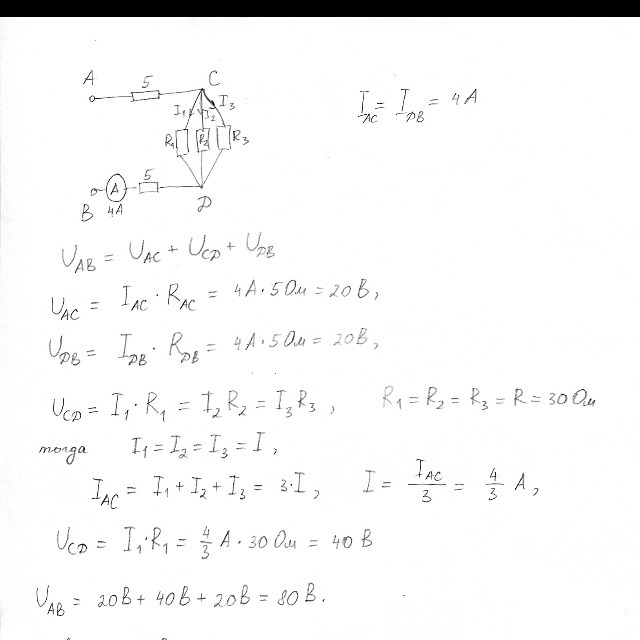 A 5 C
I₁ I₂ I₃
R₁ R₂ R₃
5
A
B 4A D
I_AC = I_DB = 4A
U_AB = U_AC + U_CD + U_DB
U_AC = I_AC · R_AC = 4A·5Ом = 20В,
U_DB = I_DB · R_DB = 4A·5Ом = 20В,
U_CD = I₁·R₁ = I₂R₂ = I₃R₃, R₁ = R₂ = R₃ = R = 30Ом
тогда I₁ = I₂ = I₃ = I,
I_AC = I₁ + I₂ + I₃ = 3·I, I = I_AC/3 = 4/3 A,
U_CD = I₁·R₁ = 4/3 A · 30Ом = 40В
U_AB = 20В + 40В + 20В = 80В.